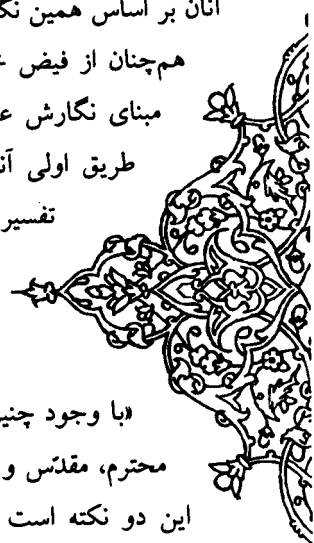 آنان بر اساس همین
هم‌چنان از فیض
مبنای نگارش
طریق اولی
تفسیر
«با وجود
محترم، مقدّس و
این دو نکته است